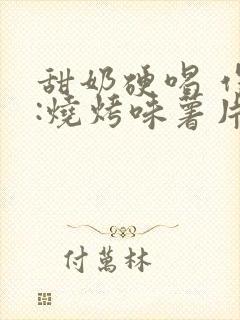 甜奶硬唱
:燒烤味薯片
付萬林